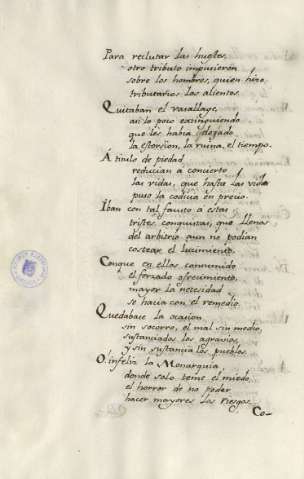 Para reclutar las hustes,
otro tributo impusieron
sobre los hombres, quien hizo
tributarios los alientos.
Quitaban el vasallage,
assi lo poco extinguiendo
que les habia dejado
la estorsion, la ruina, el tiempo.
A titulo de piedad,
reducian a concierto
las vidas, que hasta las vidas
puso la codicia en precio.
Iban con tal fausto a estas
tristes conquistas, que llenas
del arbitrio aun no podian
costear el lucimiento.
Conque en ellas convenido
el forzado ofrecimiento,
mayor la necesidad
se hacia con el remedio.
Quedabase la ocasion
sin socorro, el mal sin medio,
sustanciados los agravios
y sin sustancia los pueblos.
O infeliz la Monarquia
donde solo teme el miedo
el horror de no poder
hacer mayores los riesgos.
Co-